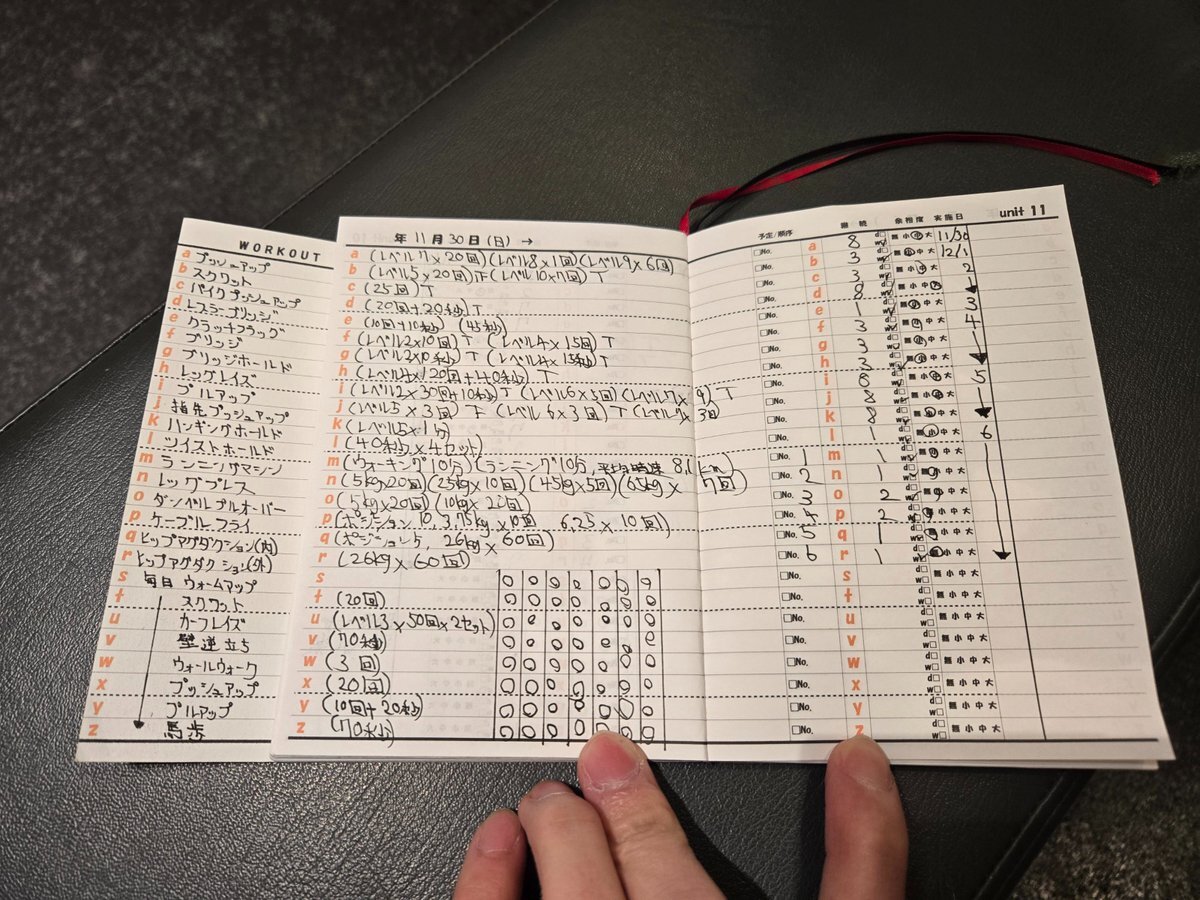 WORKOUT
a プッシュアップ
b スクワット
c パイクプッシュアップ
d レスラーブリッジ
e クラッチフラッグ
f ブリッジ
g ブリッジホールド
h レッグレイズ
i プルアップ
j 指先プッシュアップ
k ハンギングホールド
l ツイストホールド
m ランニングマシン
n レッグプレス
o ダンベルプルオーバー
p ケーブルフライ
q ヒップアダクション(内)
r ヒップアブダクション(外)
s 毎日 ウォームアップ
t スクワット
u カーフレイズ
v 壁逆立ち
w ウォールウォーク
x プッシュアップ
y プルアップ
z 馬歩
年 11月 30日 (日) →
a (レベル7×20回)(レベル8×1回)(レベル9×6回)
b (レベル5×20回)下(レベル10×7回)T
c (25回)T
d (20回+20秒)T
e (10回+10秒) (45秒)
f (レベル2×10回)T (レベル4×15回)T
g (レベル2×10秒)T (レベル4×15秒)T
h (レベル4×120回+40秒)T
i (レベル2×30回+10秒)T (レベル6×3回)(レベル7×9)T
j (レベル5×3回)下(レベル6×3回)T(レベル7×3回
k (レベル5×1分)
l (40秒×4セット)
m (ウォーキング10分)(ランニング10分,平均時速8.1km)
n (5kg20回)(25kg×10回)(45kg×5回)(65kg×7回)
o (5kg×20回)(10kg×20回)
p (ポジション10, 3.75kg×10回 6.25×10回)
q (ポジション5, 26kg×60回)
r (26kg×60回)
s
t (20回)
u (レベル3×50回×2セット)
v (70秒)
w (3回)
x (20回)
y (10回+20秒)
z (70秒)
予定/順序 継続 余裕度 実施日 unit 11
□No. a 8 d□ w□ 無小中大 11/30
□No. b 3 d□ w□ 無小中大 12/1
□No. c 3 d□ w□ 無小中大 2
□No. d 8 d□ w□ 無小中大
□No. e 1 d□ w□ 無小中大 3
□No. f 3 d□ w□ 無小中大 4
□No. g 3 d□ w□ 無小中大
□No. h 3 d□ w□ 無小中大
□No. i 8 d□ w□ 無小中大 5
□No. j 8 d□ w□ 無小中大
□No. k 8 d□ w□ 無小中大
□No. l 1 d□ w□ 無小中大 6
□No. 1 m 1 d□ w□ 無小中大
□No. 2 n 1 d□ w□ 無小中大
□No. 3 o 2 d□ w□ 無小中大
□No. 4 p 2 d□ w□ 無小中大
□No. 5 q 1 d□ w□ 無小中大
□No. 6 r 1 d□ w□ 無小中大
□No. s d□ w□ 無小中大
□No. t d□ w□ 無小中大
□No. u d□ w□ 無小中大
□No. v d□ w□ 無小中大
□No. w d□ w□ 無小中大
□No. x d□ w□ 無小中大
□No. y d□ w□ 無小中大
□No. z d□ w□ 無小中大